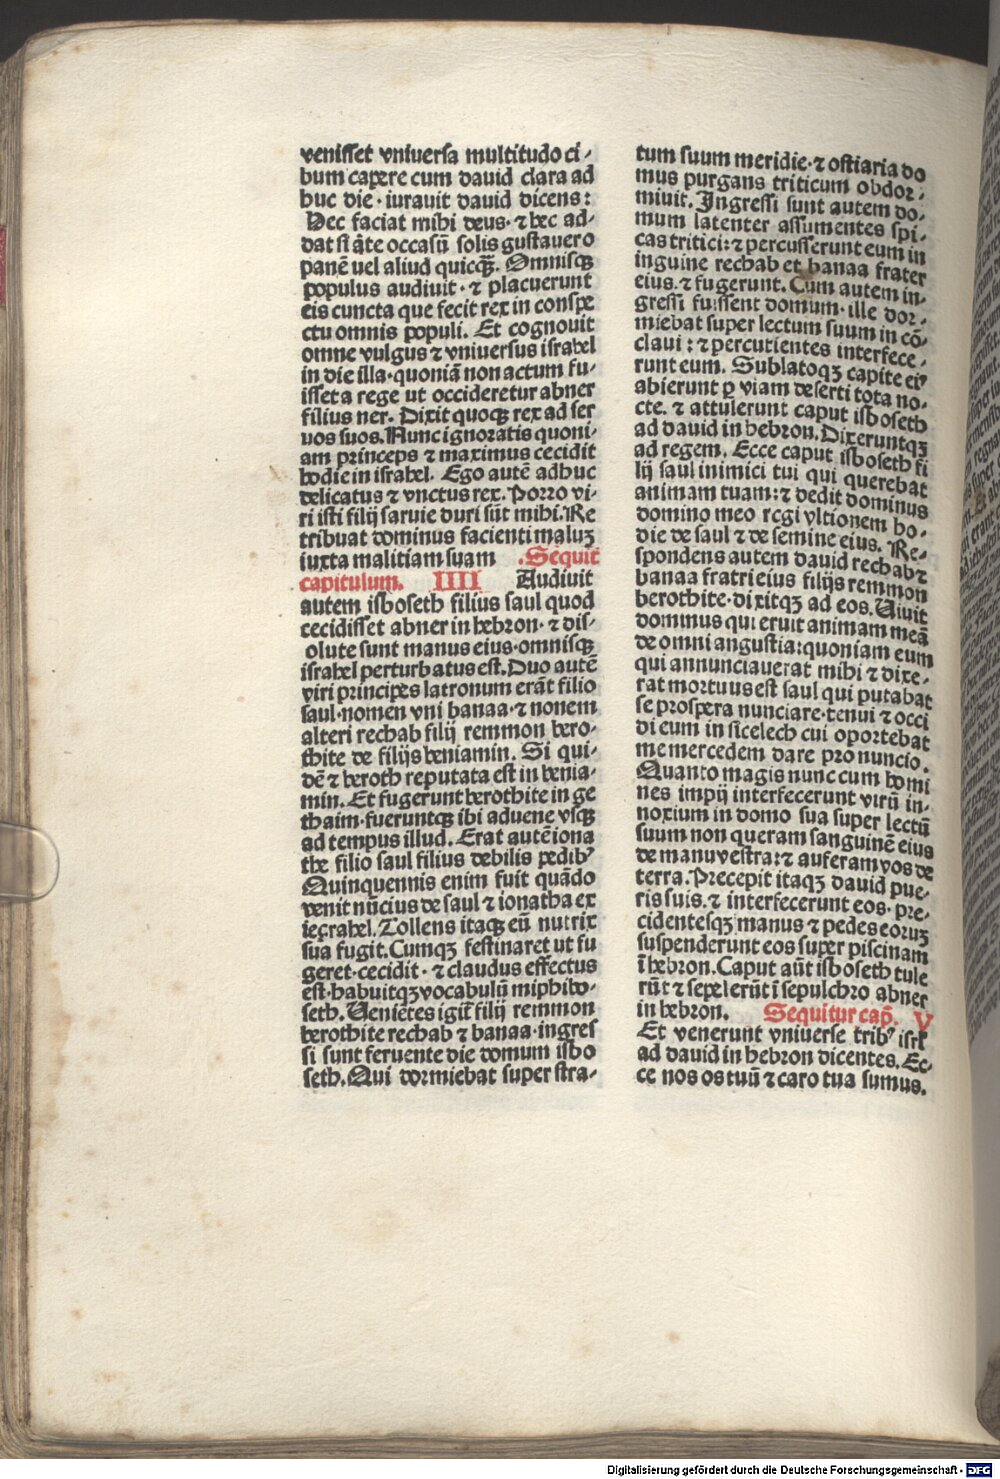 venisset vniuersa multitudo ci-
bum capere cum dauid clara ad
huc die · iurauit dauid dicens :
Hec faciat mihi deus · ⁊ hec ad-
dat si āte occasū solis gustauero
panē uel aliud quicqꝫ. Omnisqꝫ
populus audiuit · ⁊ placuerunt
eis cuncta que fecit rex in conspe
ctu omnis populi. Et cognouit
omne vulgus ⁊ vniuersus israhel
in die illa · quoniā non actum fu-
isset a rege ut occideretur abner
filius ner. Dixit quoqꝫ rex ad ser
uos suos. Nunc ignoratis quoni-
am princeps ⁊ maximus cecidit
hodie in israhel. Ego autē adhuc
delicatus ⁊ vnctus rex. Porro vi-
ri isti filij saruie duri sūt mihi. Re
tribuat dominus facienti maluꝫ
iuxta malitiam suam .Sequit᷑
capitulum. IIII Audiuit
autem isboseth filius saul quod
cecidisset abner in hebron · ⁊ dis-
olute sunt manus eius · omnisqꝫ
israhel perturbatus est. Duo autē
viri principes latronum erāt filio
saul · nomen vni banaa · ⁊ nonem
alteri rechab filij remmon bero-
thite de filijs beniamin. Si qui-
dē ⁊ beroth reputata est in benia-
min. Et fugerunt berothite in ge
thaim · fueruntqꝫ ibi aduene vsqꝫ
ad tempus illud. Erat autē iona
the filio saul filius debilis pedibꝰ
Quinquennis enim fuit quādo
venit nūcius de saul ⁊ ionatha ex
iecrahel. Tollens itaqꝫ eū nutrix
sua fugit. Cumqꝫ festinaret ut fu
geret · cecidit · ⁊ claudus effectus
est · habuitqꝫ vocabulū miphibo-
seth. Ueniētes igit᷑ filij remmon
berothite rechab ⁊ banaa · ingres
si sunt feruente die domum isbo
seth. Qui dormiebat super stra-
tum suum meridie · ⁊ ostiaria do
mus purgans triticum obdor-
miuit. Ingressi sunt autem do-
mum latenter assumentes spi-
cas tritici : ⁊ percusserunt eum in
inguine rechab et banaa frater
eius · ⁊ fugerunt. Cum autem in-
gressi fuissent domum · ille dor-
miebat super lectum suum in cō-
claui : ⁊ percutientes interfece-
runt eum. Sublatoqꝫ capite eiꝰ
abierunt ꝑ viam deserti tota no-
cte. ⁊ attulerunt caput isboseth
ad dauid in hebron. Dixeruntqꝫ
ad regem. Ecce caput isboseth fi
lij saul inimici tui qui querebat
animam tuam : ⁊ dedit dominus
domino meo regi vltionem ho-
die de saul ⁊ de semine eius. Re-
spondens autem dauid rechab ⁊
banaa fratri eius filijs remmon
berothite · dixitqꝫ ad eos. Uiuit
dominus qui eruit animam meā
de omni angustia : quoniam eum
qui annunciauerat mihi ⁊ dixe-
rat mortuus est saul qui putabat
se prospera nunciare · tenui ⁊ occi
di eum in sicelech cui oportebat
me mercedem dare pro nuncio.
Quanto magis nunc cum homi
nes impij interfecerunt virū in-
noxium in domo sua super lectū
suum non queram sanguinē eius
de manu vestra : ⁊ auferam vos de
terra. Precepit itaqꝫ dauid pue-
ris suis. ⁊ interfecerunt eos · pre-
cidentesqꝫ manus ⁊ pedes eoruꝫ
suspenderunt eos super piscinam
ī hebron. Caput aūt isboseth tule
rūt ⁊ sepelerūt ī sepulchro abner
in hebron. Sequitur cap̄. V
Et venerunt vniuerse tribꝰ isrl
ad dauid in hebron dicentes. Ec-
ce nos os tuū ⁊ caro tua sumus.
Digitalisierung gefördert durch die Deutsche Forschungsgemeinschaft - DFG